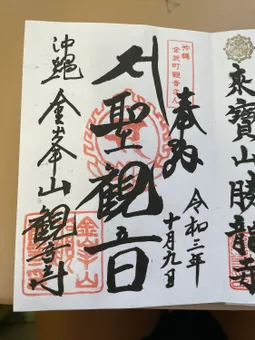 沖縄
金武町観音さん
奉拝
令和三年
十月九日
聖観音
沖縄 金峯山 観音寺
寶山勝龍寺